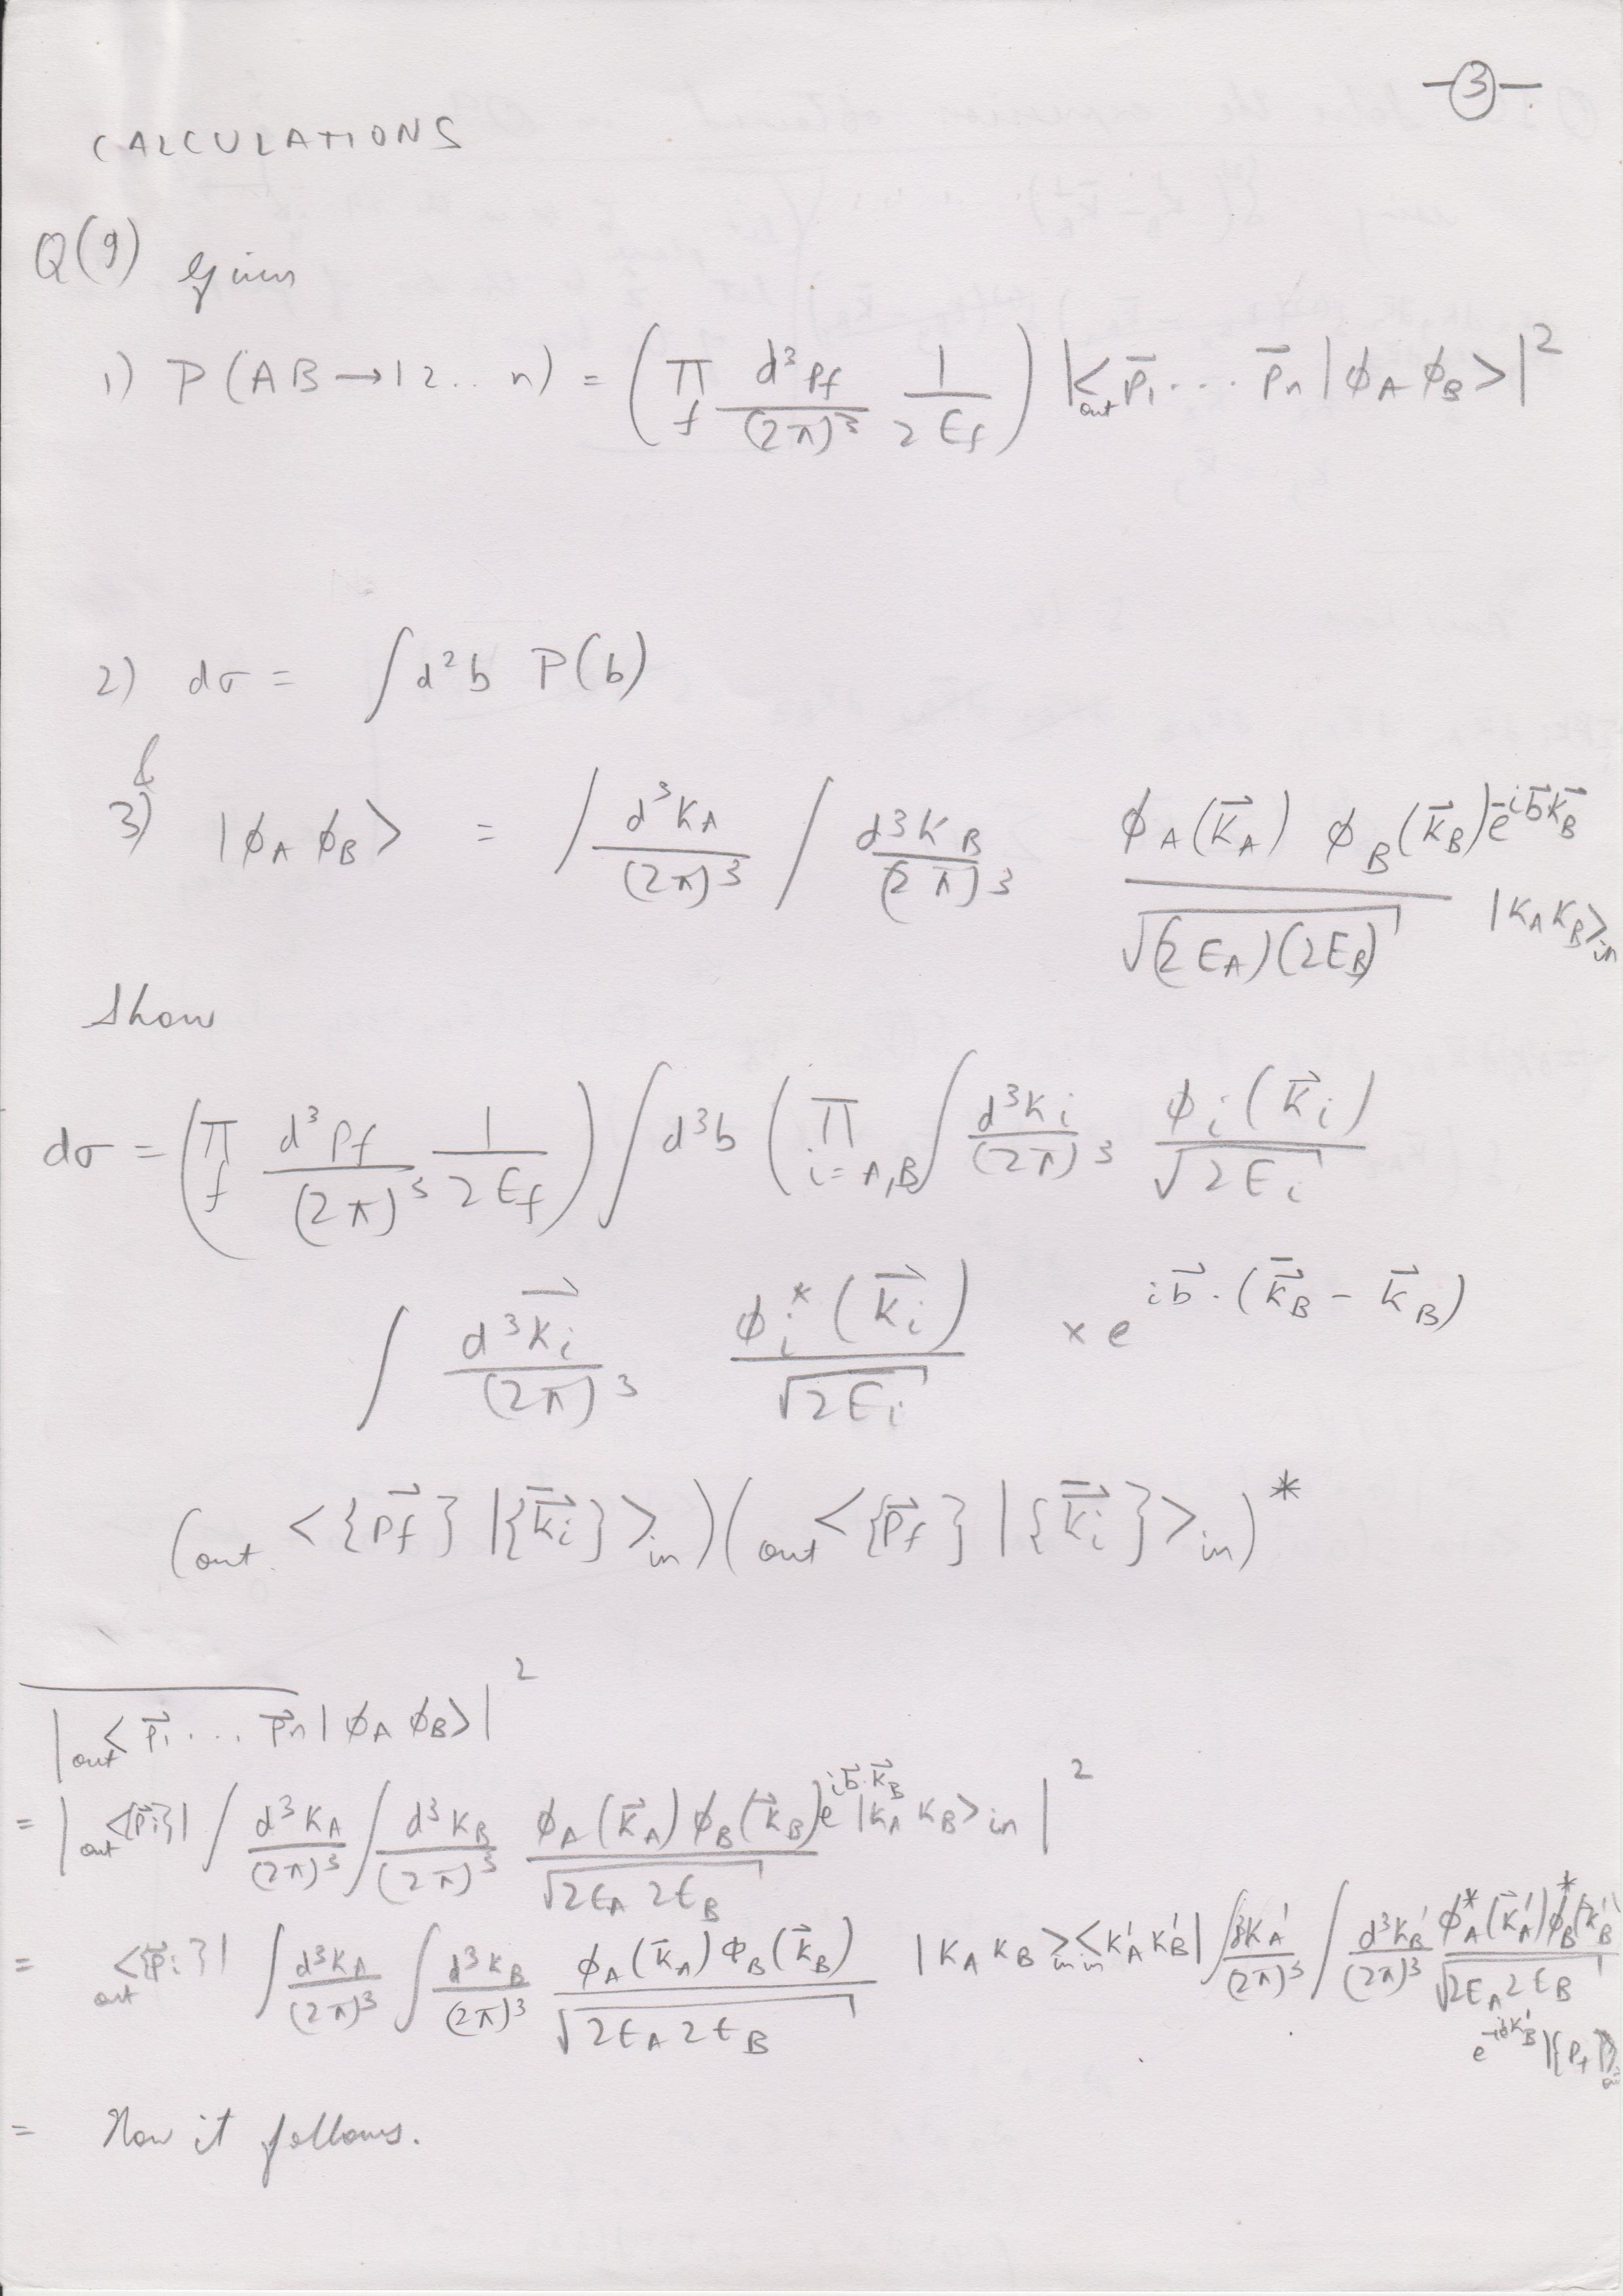 -③-
CALCULATIONS
Q(9) Given
1) P(AB→12..n) = (Π_f d³p_f/(2π)³ 1/(2E_f)) |<_out p̄₁.... p̄_n|ϕ_A ϕ_B>|²
2) dσ = ∫d²b P(b)
&
3) |ϕ_A ϕ_B> = ∫ d³K_A/(2π)³ ∫ d³K_B/(2π)³ ϕ_A(K⃗_A) ϕ_B(K⃗_B) e^{-ib⃗K⃗_B}/√((2E_A)(2E_B)) |K_A K_B>_in
Show
dσ = (Π_f d³p_f/(2π)³ 1/(2E_f)) ∫d³b (Π_{i=A,B} ∫ d³K_i/(2π)³ ϕ_i(K⃗_i)/√(2E_i)
∫ d³K⃗_i/(2π)³ ϕ_i*(K⃗_i)/√(2E_i) × e^{ib⃗.(K̄⃗_B - K⃗_B)}
(_out<{p⃗_f}|{K̄⃗_i}>_in)(_out<{p⃗_f}|{K̄⃗_i}>_in)*
|_out<p⃗₁... p⃗_n|ϕ_A ϕ_B>|²
= |_out<{p⃗_i}| ∫ d³K_A/(2π)³ ∫ d³K_B/(2π)³ ϕ_A(K⃗_A) ϕ_B(K⃗_B)/√(2E_A 2E_B) e^{ib⃗.K⃗_B} |K_A K_B>_in|²
= _out<{p⃗_i}| ∫ d³K_A/(2π)³ ∫ d³K_B/(2π)³ ϕ_A(K̄_A) ϕ_B(K⃗_B)/√(2E_A 2E_B) |K_A K_B>_in _in<K'_A K'_B| ∫ d³K'_A/(2π)³ ∫ d³K'_B/(2π)³ ϕ*_A(K⃗'_A) ϕ*_B(K⃗'_B)/√(2E_A 2E_B)
e^{-ibK'_B} |{p_f}>_out
= Now it follows.